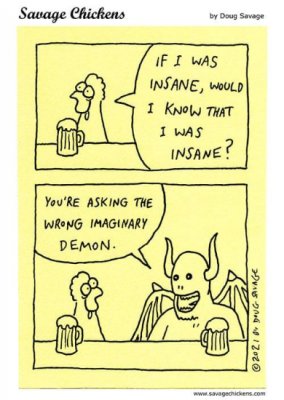 Savage Chickens
by Doug Savage
IF I WAS
INSANE, WOULD
I KNOW THAT
I WAS
INSANE?
YOU'RE ASKING THE
WRONG IMAGINARY
DEMON.
© 2021 BY DOUG SAVAGE
www.savagechickens.com